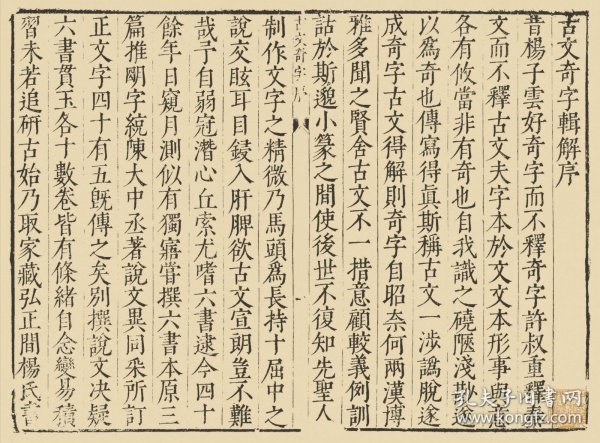 古文奇字輯解序
昔楊子雲好奇字而不釋奇字許叔重釋
文而不釋古文夫字本於文文本形事與意
各有攸當非有奇也自我識之磽陿淺遂
以爲奇也傳寫得眞斯稱古文一涉譌脫遂
成奇字古文得解則奇字自昭奈何兩漢博
雅多聞之賢舍古文不一措意顧較義例訓
詁於斯邈小篆之間使後世不復知先聖人
古文奇字序
制作文字之精微乃馬頭爲長持十屈中之
說交眩耳目鋟入肝脾欲古文宣朗豈不難
哉予自弱冠潛心丘索尤嗜六書逮今四十
餘年日窺月測似有獨寤嘗撰六書本原三
篇推朙字統陳大中丞著說文異同采所訂
正文字四十有五旣傳之矣別撰說文決疑
六書貫玉各十數卷皆有條緒自念易積
習未若追研古始乃取家藏弘正間楊氏書
孔夫子旧书网
www.kongfz.com